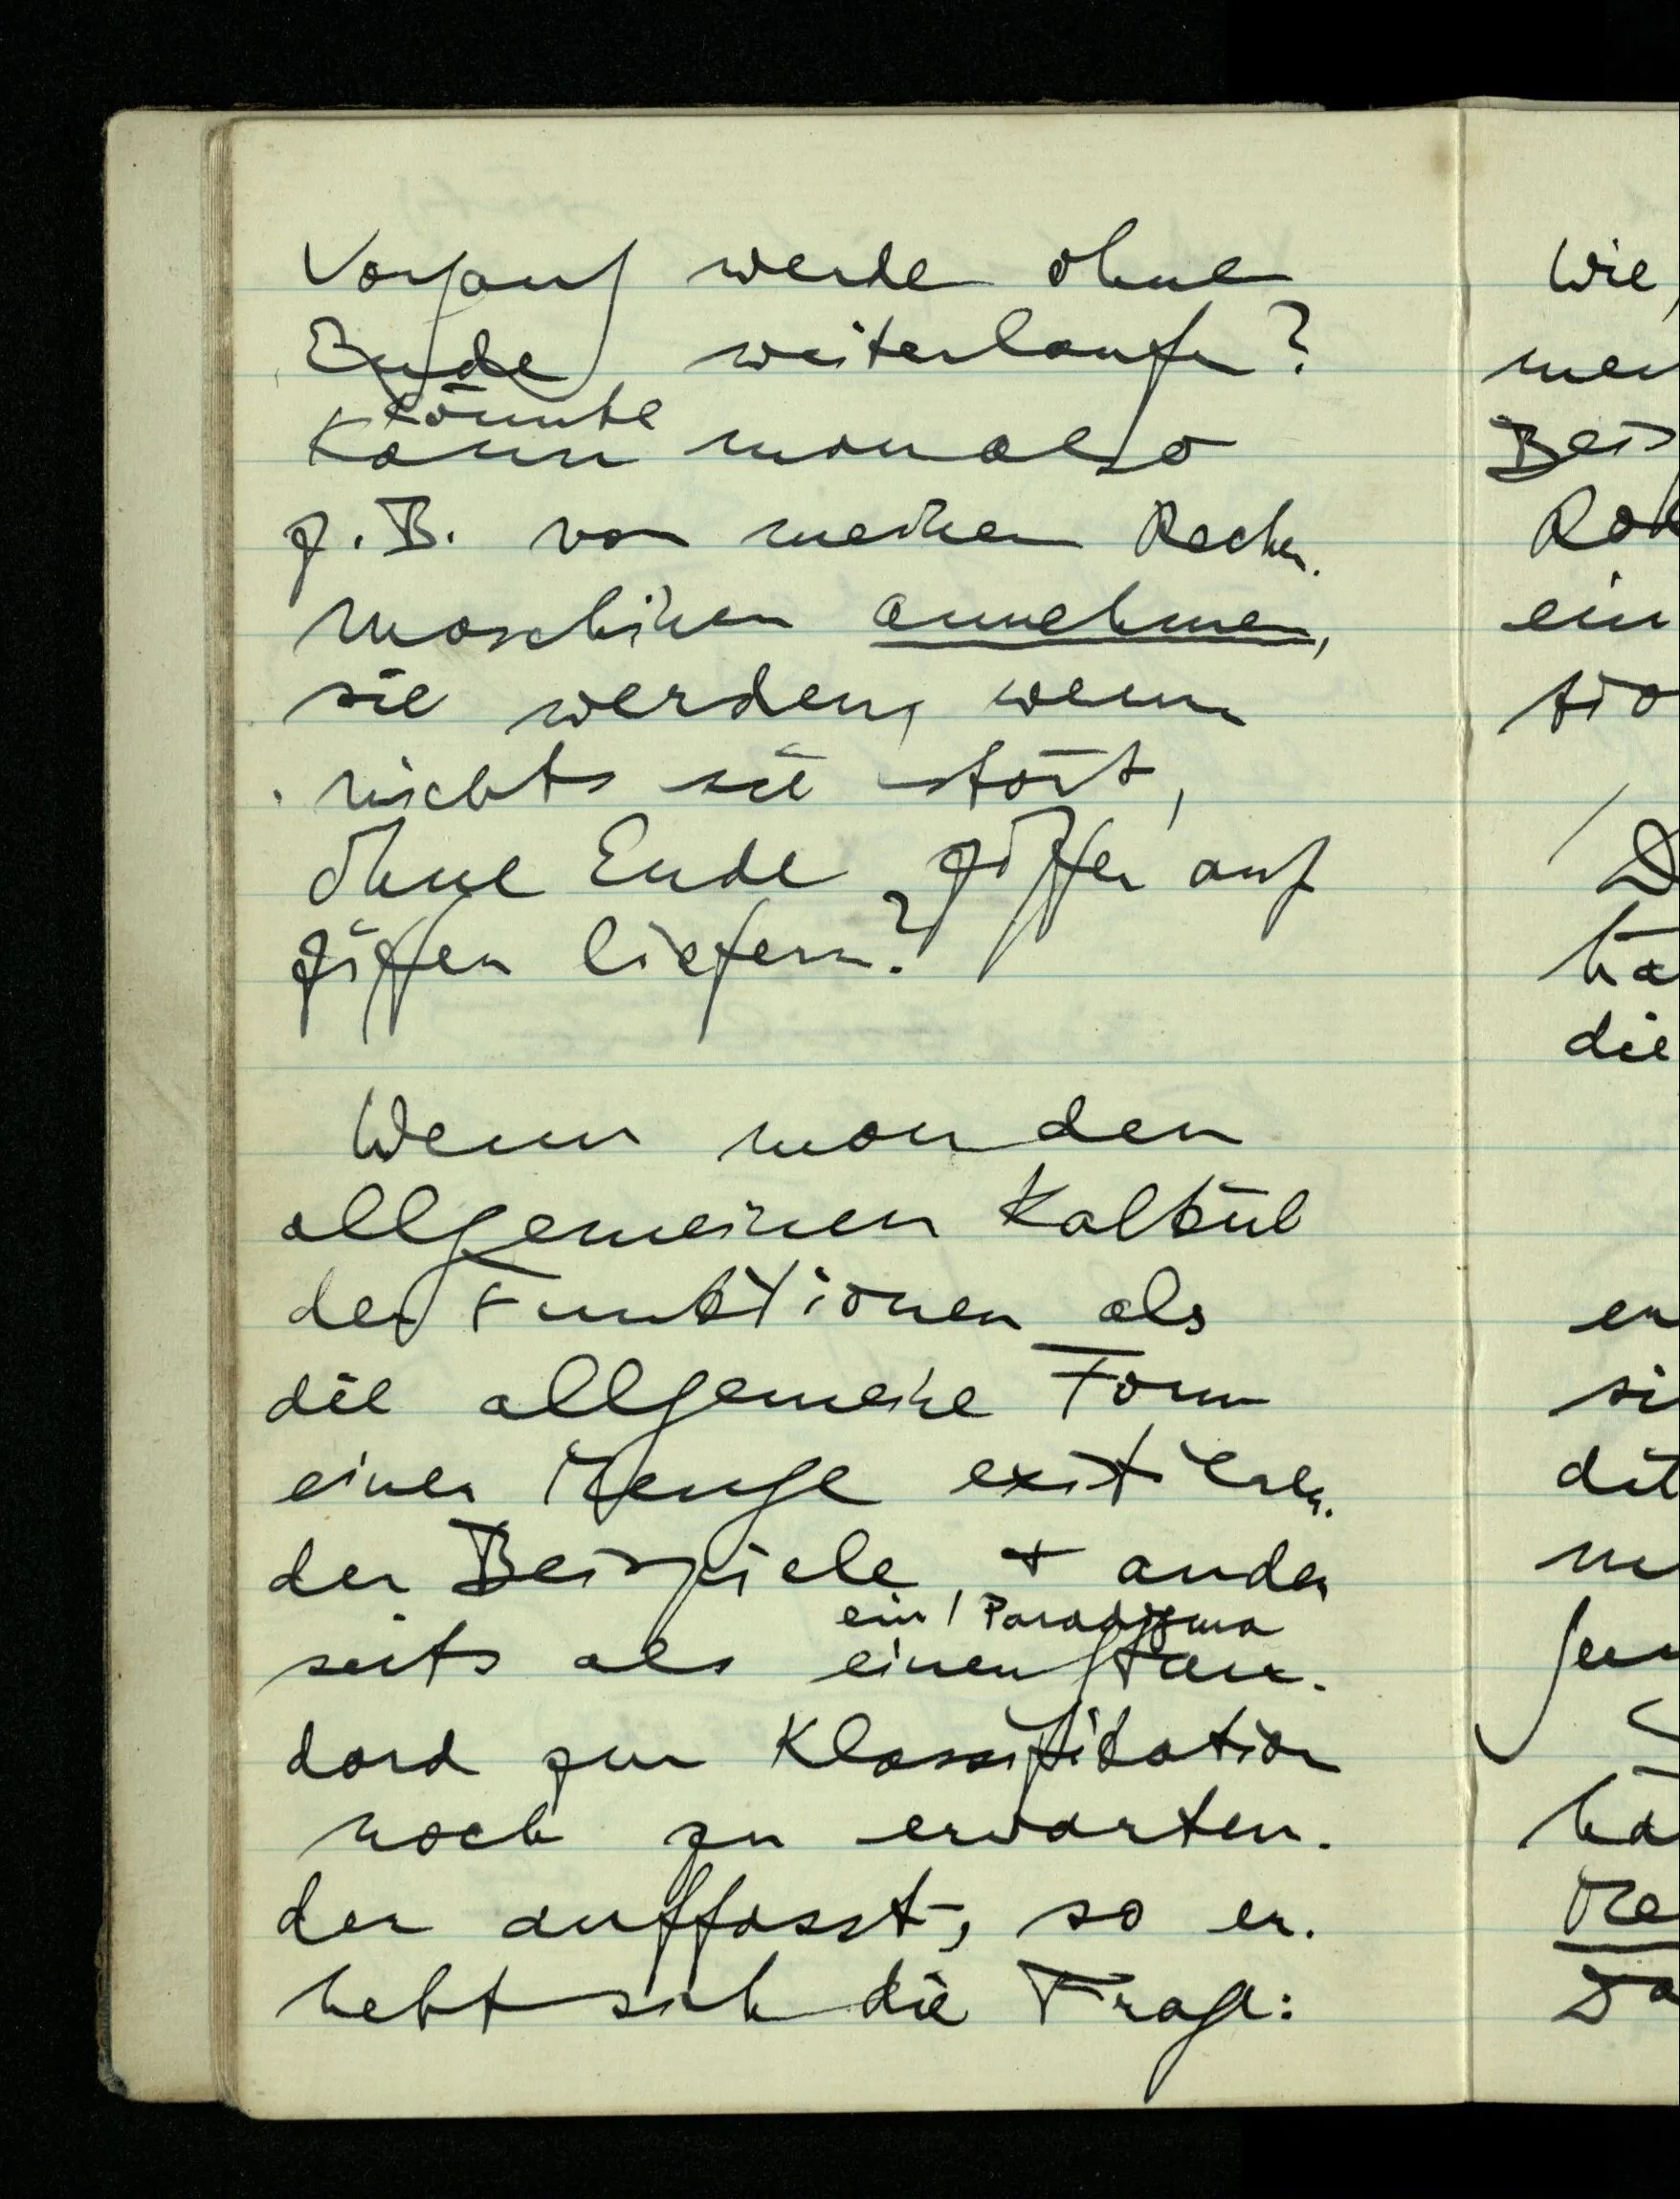 Vorgang werde ohne
Ende weiterlaufen?
könnte
Kann man also
z.B. von meinen Rechen-
maschinen annehmen,
sie werden, wenn
nichts sie stört,
ohne Ende Ziffer auf
Ziffer liefern?
Wenn man den
allgemeinen Kalkül
der Funktionen als
die allgemeine Form
einer Menge existieren-
der Beispiele, + ander
seits als einen Stan-
ein Paradigma
dard zur Klassifikation
noch zu erwarten-
der auffasst, so er-
hebt sich die Frage:
Wie,
ein
D
die